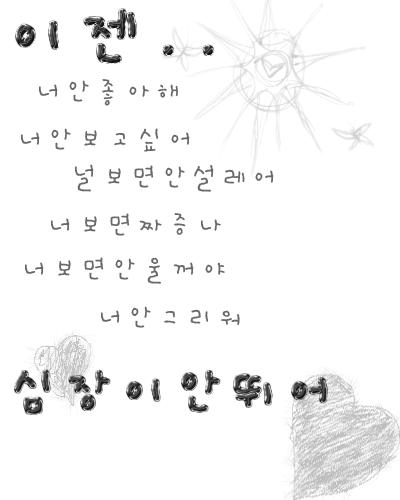 이 젠..
너 안 좋 아 해
너 안 보 고 싶 어
널 보 면 안 설 레 어
너 보 면 짜 증 나
너 보 면 안 울 꺼 야
너 안 그 리 워
심 장 이 안 뛰 어